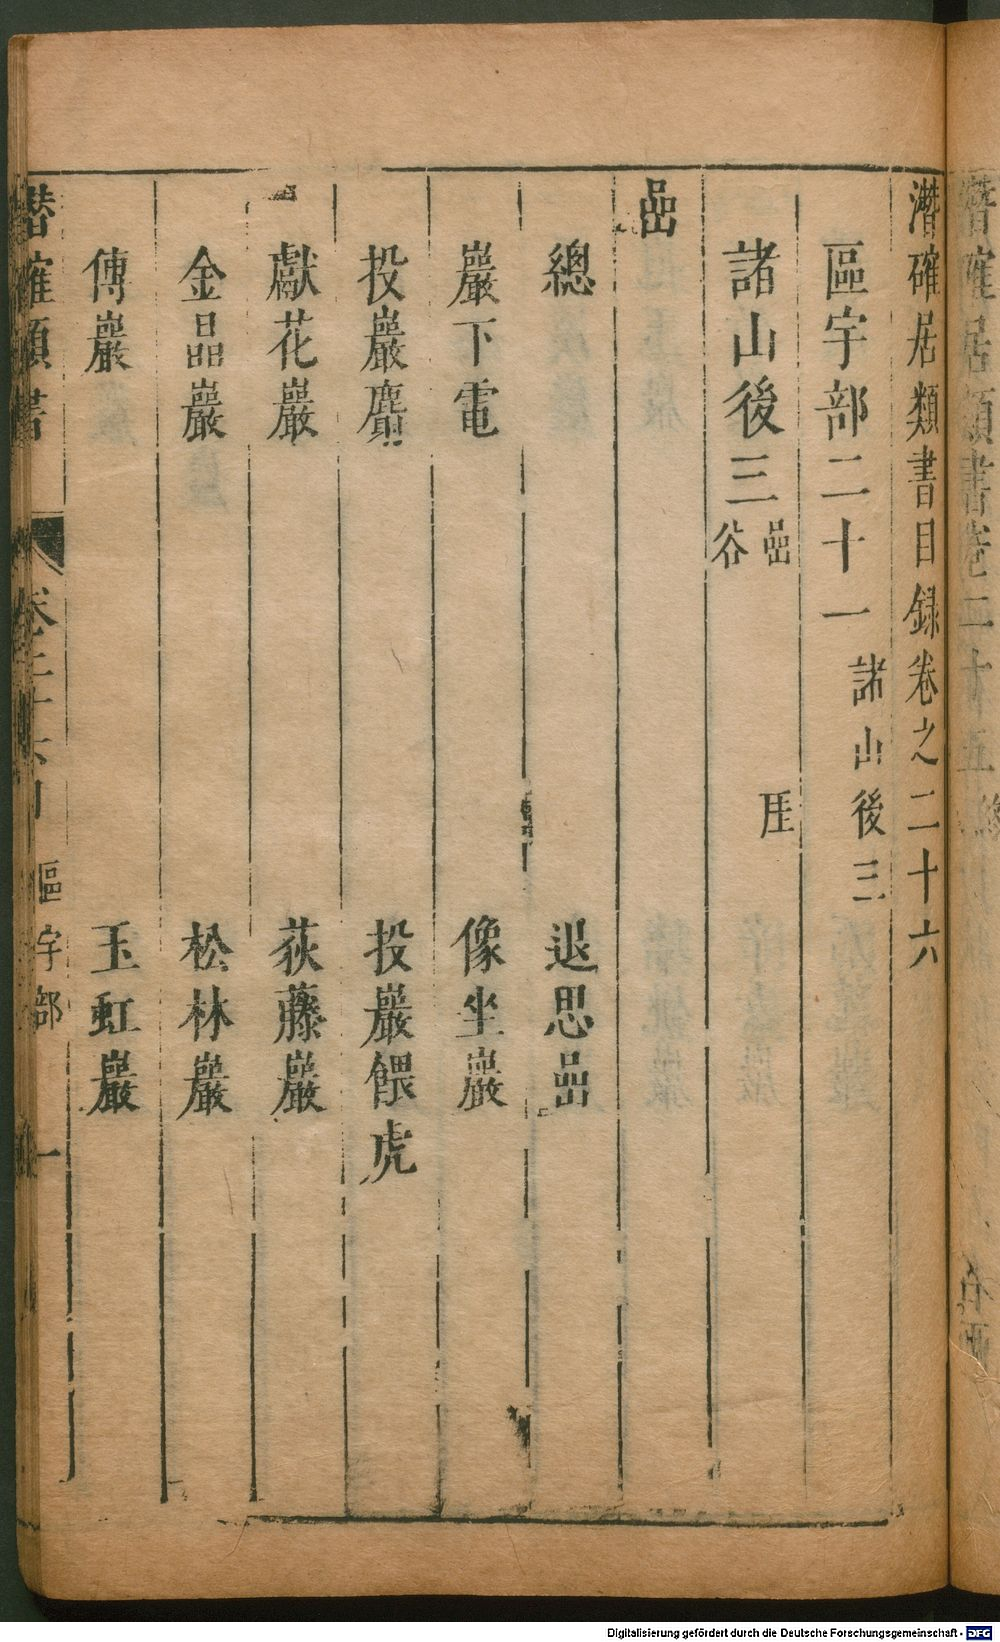 潛確居類書目錄卷之二十六
區宇部二十一 諸山後三
諸山後三 嵒 厓
谷
嵒
總 退思嵒
巖下電 像坐巖
投巖麝 投巖餵虎
獻花巖 荻藤巖
金晶巖 松林巖
傅巖 玉虹巖
潛確類書 卷二十六目 區宇部 一
Digitalisierung gefördert durch die Deutsche Forschungsgemeinschaft - DFG